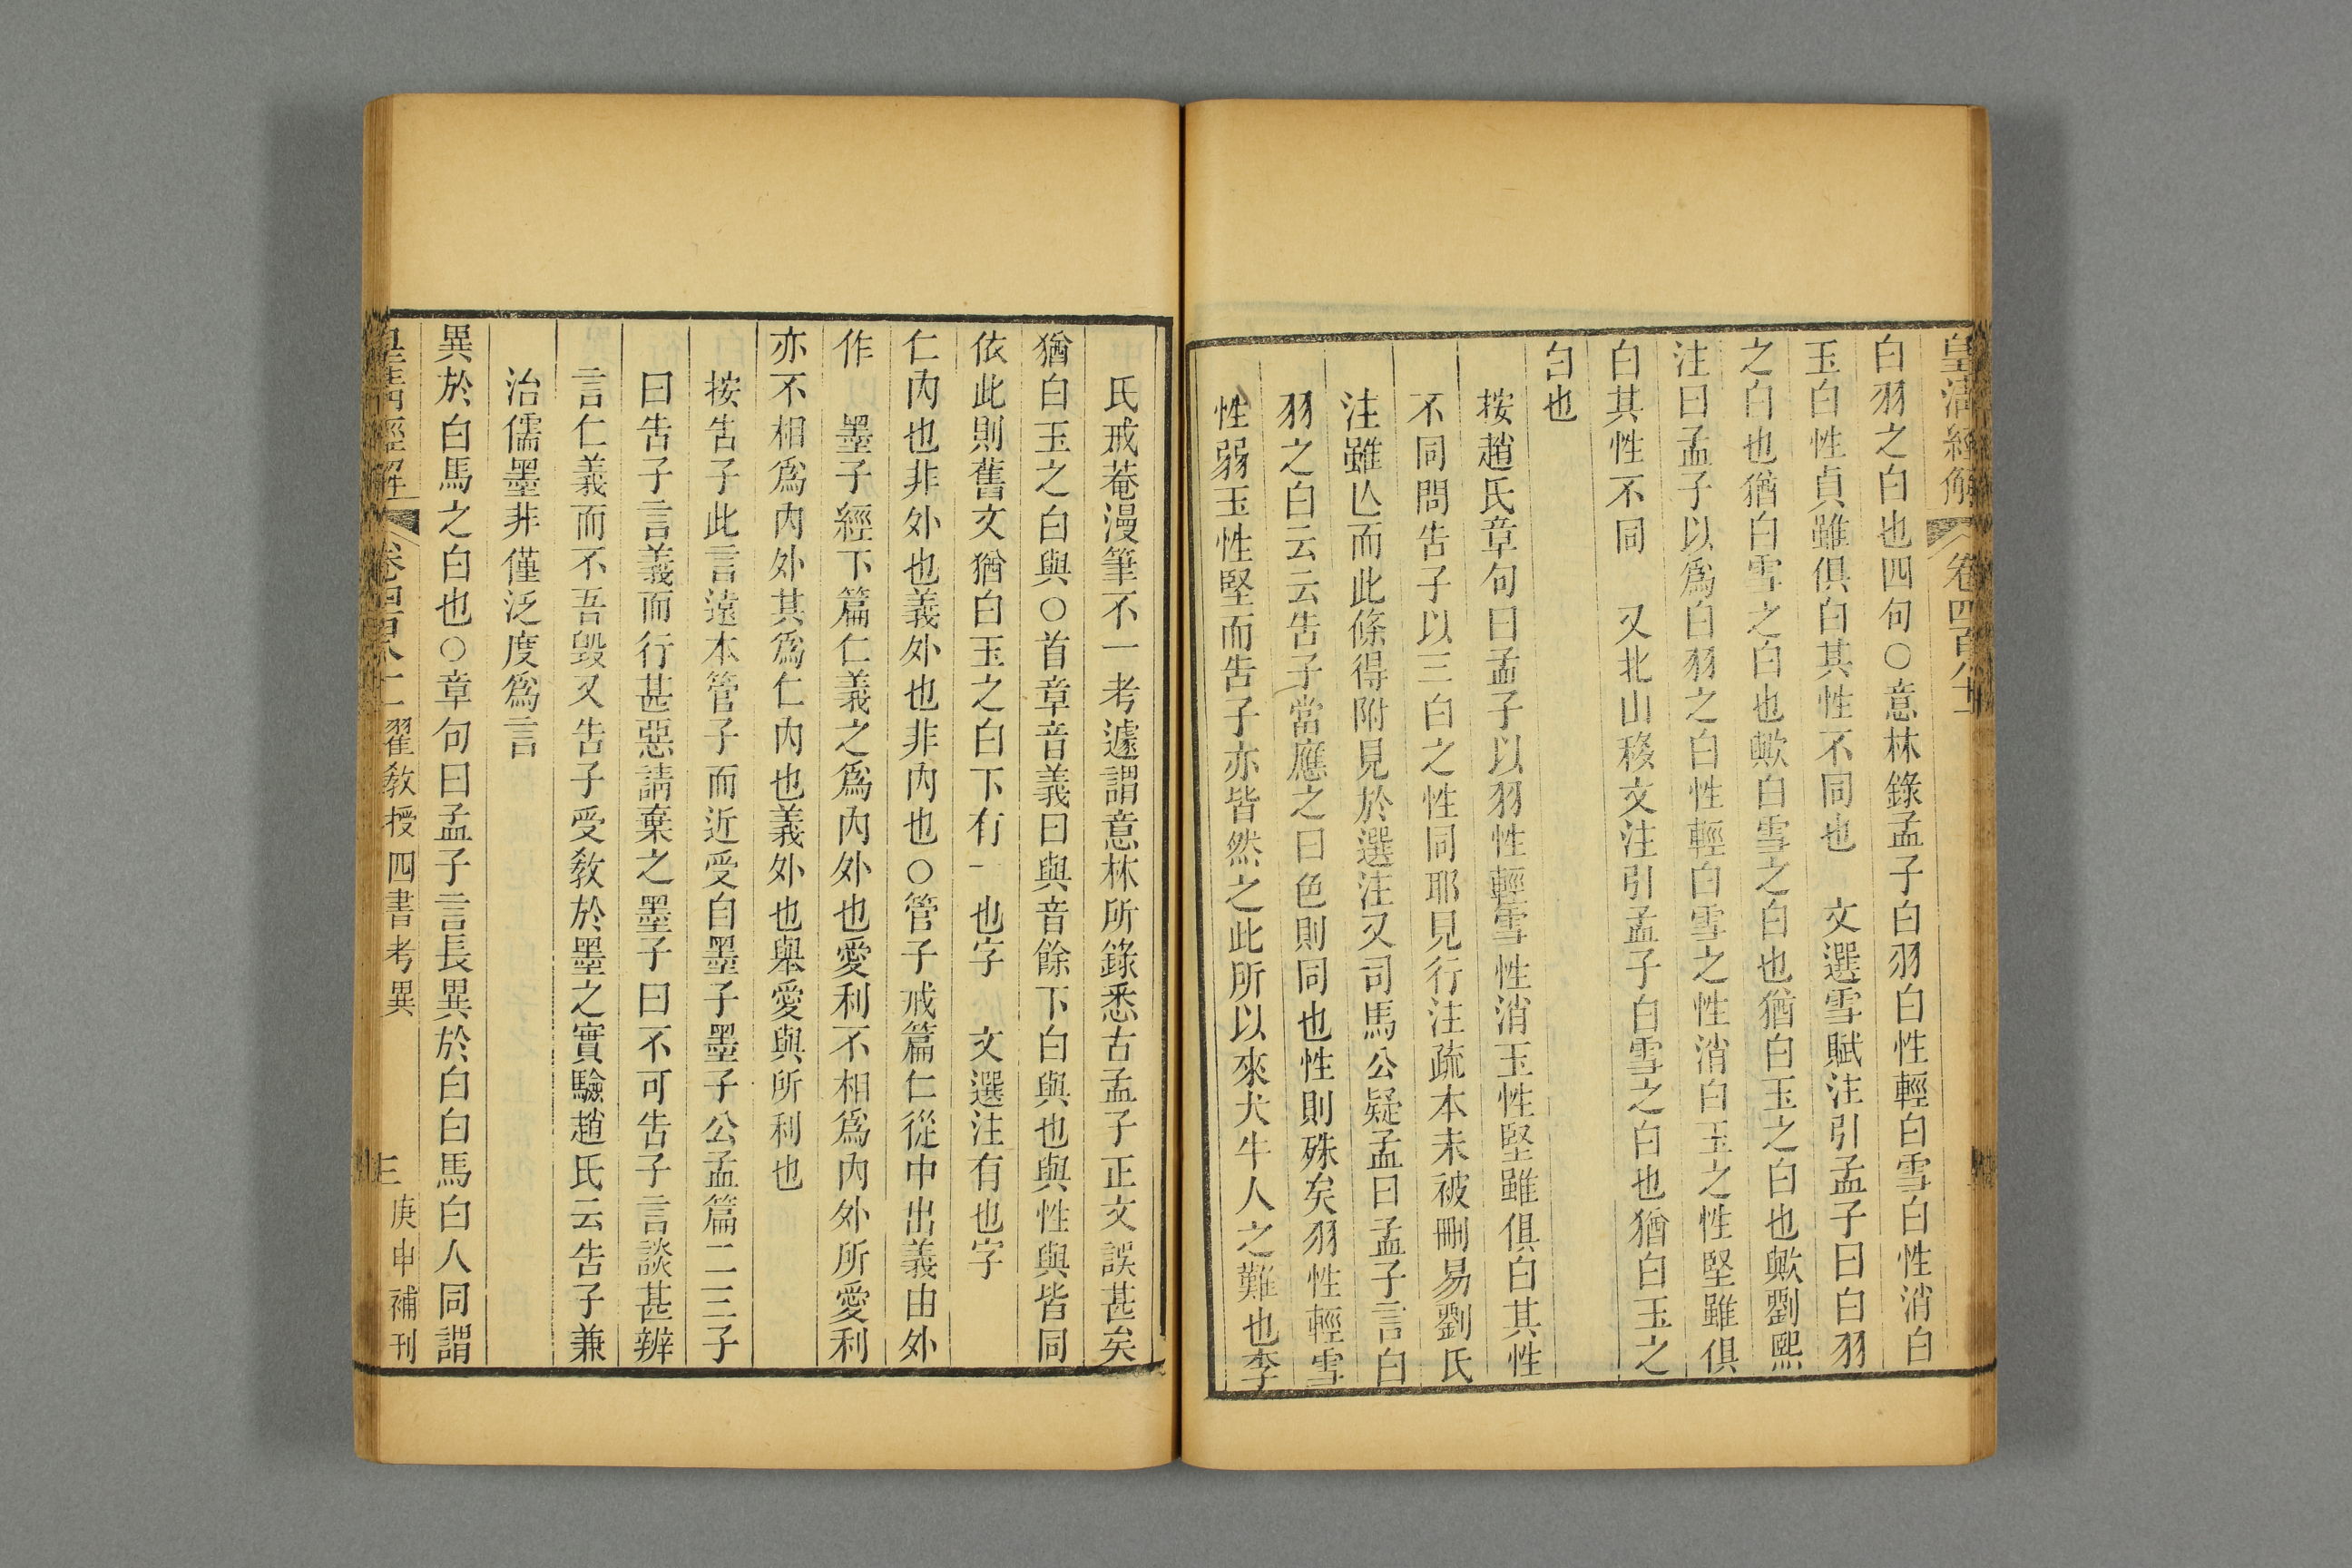 皇清經解 卷四百八十一
白羽之白也四句○意林錄孟子白羽白性輕白雪白性消白
玉白性貞雖俱白其性不同也 文選雪賦注引孟子曰白羽
之白也猶白雪之白也歟白雪之白也猶白玉之白也歟劉熙
注曰孟子以爲白羽之白性輕白雪之性消白玉之性堅雖俱
白其性不同 又北山移文注引孟子白雪之白也猶白玉之
白也
按趙氏章句曰孟子以羽性輕雪性消玉性堅雖俱白其性
不同問告子以三白之性同耶見行注疏本未被刪易劉氏
注雖亾而此條得附見於選注又司馬公疑孟曰孟子言白
羽之白云云告子當應之曰色則同也性則殊矣羽性輕雪
性弱玉性堅而告子亦皆然之此所以來犬牛人之難也李
氏戒菴漫筆不一考遽謂意林所錄悉古孟子正文誤甚矣
猶白玉之白與○首章音義曰與音餘下白與也與性與皆同
依此則舊文猶白玉之白下有一也字 文選注有也字
仁內也非外也義外也非內也○管子戒篇仁從中出義由外
作 墨子經下篇仁義之爲內外也愛利不相爲內外所愛利
亦不相爲內外其爲仁內也義外也舉愛與所利也
按告子此言遠本管子而近受自墨子墨子公孟篇二三子
曰告子言義而行甚惡請棄之墨子曰不可告子言談甚辨
言仁義而不吾毀又告子受敎於墨之實驗趙氏云告子兼
治儒墨非僅泛度爲言
異於白馬之白也○章句曰孟子言長異於白白馬白人同謂
皇淸經解 卷四百八十一 翟敎授四書考異 三 庚申補刊